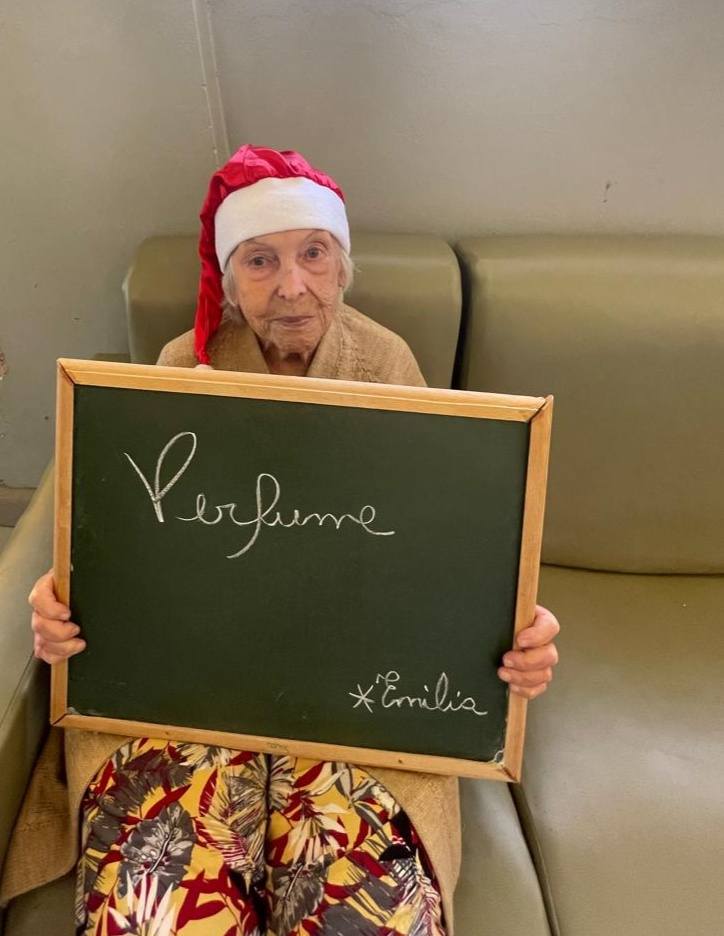 Perfume
*Emilia